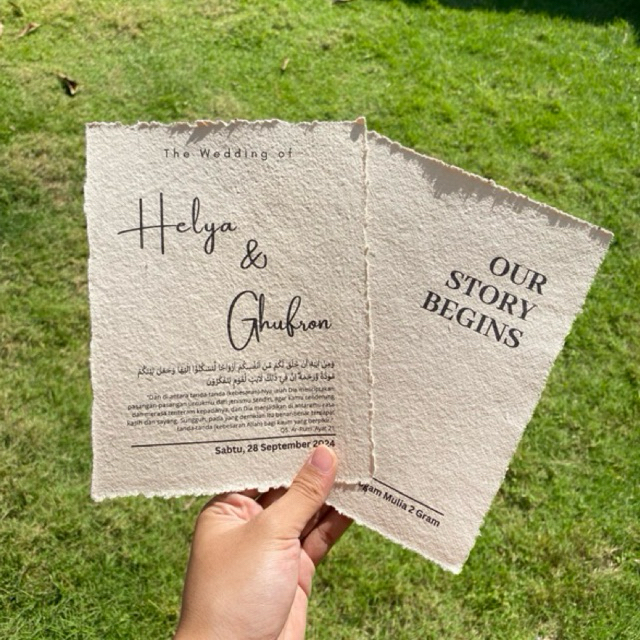 The Wedding of
Helya
&
Ghufron
وَمِنْ آيَاتِهِ أَنْ خَلَقَ لَكُمْ مِنْ أَنْفُسِكُمْ أَزْوَاجًا لِتَسْكُنُوا إِلَيْهَا وَجَعَلَ بَيْنَكُمْ
مَوَدَّةً وَرَحْمَةً إِنَّ فِي ذَٰلِكَ لَآيَاتٍ لِقَوْمٍ يَتَفَكَّرُونَ
"Dan diantara tanda-tanda (kebesaran)Nya ialah Dia menciptakan
pasangan-pasangan untukmu dari jenismu sendiri, agar kamu cenderung
dan merasa tenteram kepadanya, dan Dia menjadikan di antaramu rasa
kasih dan sayang. Sungguh, pada yang demikian itu benar-benar terdapat
tanda-tanda (kebesaran Allah) bagi kaum yang berpikir".
QS. Ar-Rum: Ayat 21
Sabtu, 28 September 2024
OUR
STORY
BEGINS
Mulia 2 Gram